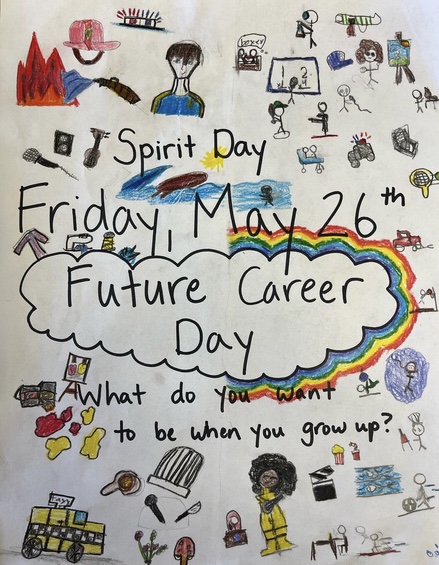 Spirit Day
Friday, May 26th
Future Career
Day
What do you want
to be when you grow up?
Taxi